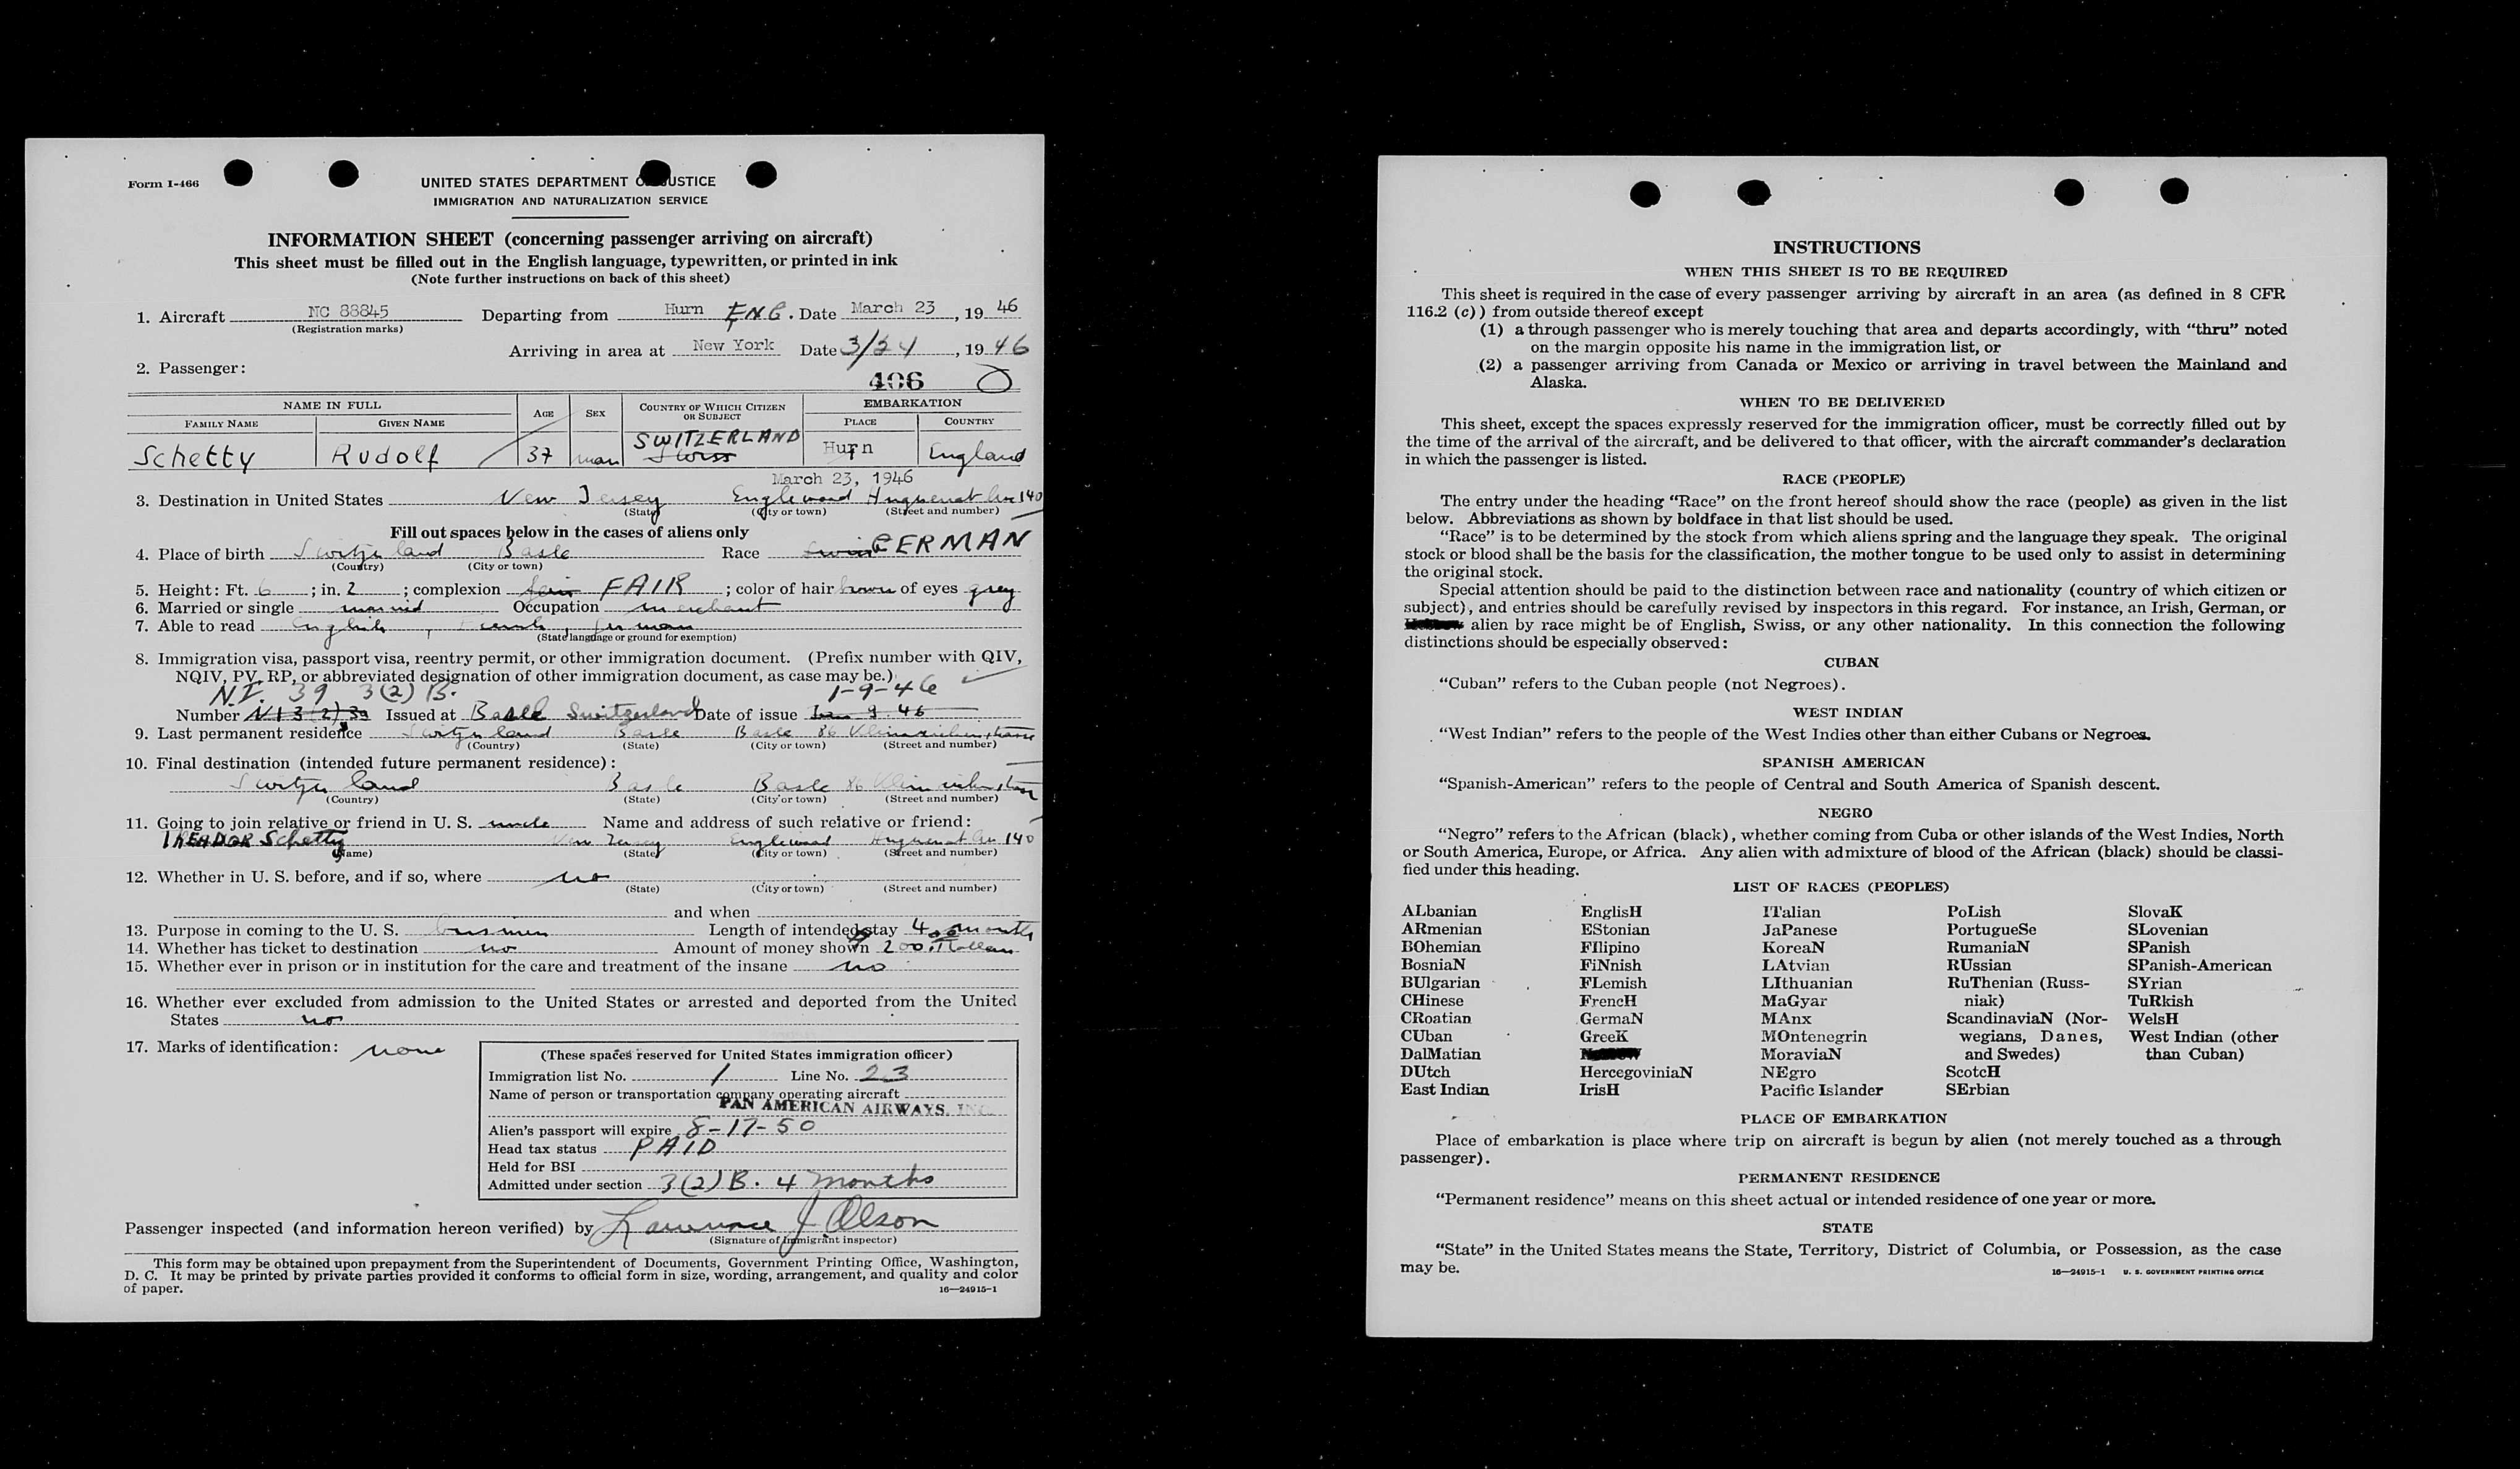 Form I-466
UNITED STATES DEPARTMENT OF JUSTICE
IMMIGRATION AND NATURALIZATION SERVICE
INFORMATION SHEET (concerning passenger arriving on aircraft)
This sheet must be filled out in the English language, typewritten, or printed in ink
(Note further instructions on back of this sheet)
1. Aircraft NC 88845 Departing from Hurn ENG. Date March 23, 1946
(Registration marks)
Arriving in area at New York Date 3/24, 1946
2. Passenger:
406
NAME IN FULL AGE SEX COUNTRY OF WHICH CITIZEN OR SUBJECT EMBARKATION
FAMILY NAME GIVEN NAME PLACE COUNTRY
SWITZERLAND
Schetty Rudolf 37 man Swiss Hurn England
March 23, 1946
3. Destination in United States New Jersey Englewood Huguenot Ave 140
(State) (City or town) (Street and number)
Fill out spaces below in the cases of aliens only
4. Place of birth Switzerland Basle Race Swiss GERMAN
(Country) (City or town)
5. Height: Ft. 6; in. 2; complexion fair FAIR; color of hair brown of eyes grey
6. Married or single married Occupation merchant
7. Able to read English, French, german
(State language or ground for exemption)
8. Immigration visa, passport visa, reentry permit, or other immigration document. (Prefix number with QIV,
NQIV, PV, RP, or abbreviated designation of other immigration document, as case may be.)
N.I. 39 3(2) B. 1-9-46
Number NI 3(2) 39 Issued at Basle Switzerland Date of issue Jan 9. 46
9. Last permanent residence Switzerland Basle Basle 86
(Country) (State) (City or town) (Street and number)
10. Final destination (intended future permanent residence):
Switzerland Basle Basle 86
(Country) (State) (City or town) (Street and number)
11. Going to join relative or friend in U. S. uncle Name and address of such relative or friend:
THEADOR Schetty New Jersey Englewood Huguenot Av 140
(Name) (State) (City or town) (Street and number)
12. Whether in U. S. before, and if so, where no
(State) (City or town) (Street and number)
and when
13. Purpose in coming to the U. S. business Length of intended stay 4 months
14. Whether has ticket to destination no Amount of money shown 200. Dollars
15. Whether ever in prison or in institution for the care and treatment of the insane no
16. Whether ever excluded from admission to the United States or arrested and deported from the United
States no
17. Marks of identification: none
(These spaces reserved for United States immigration officer)
Immigration list No. 1 Line No. 23
Name of person or transportation company operating aircraft
PAN AMERICAN AIRWAYS, INC.
Alien's passport will expire 8-17-50
Head tax status PAID
Held for BSI
Admitted under section 3(2) B. 4 months
Passenger inspected (and information hereon verified) by Lawrence J Olson
(Signature of immigrant inspector)
This form may be obtained upon prepayment from the Superintendent of Documents, Government Printing Office, Washington,
D. C. It may be printed by private parties provided it conforms to official form in size, wording, arrangement, and quality and color
of paper. 16—24915-1
INSTRUCTIONS
WHEN THIS SHEET IS TO BE REQUIRED
This sheet is required in the case of every passenger arriving by aircraft in an area (as defined in 8 CFR
116.2 (c)) from outside thereof except
(1) a through passenger who is merely touching that area and departs accordingly, with "thru" noted
on the margin opposite his name in the immigration list, or
(2) a passenger arriving from Canada or Mexico or arriving in travel between the Mainland and
Alaska.
WHEN TO BE DELIVERED
This sheet, except the spaces expressly reserved for the immigration officer, must be correctly filled out by
the time of the arrival of the aircraft, and be delivered to that officer, with the aircraft commander's declaration
in which the passenger is listed.
RACE (PEOPLE)
The entry under the heading "Race" on the front hereof should show the race (people) as given in the list
below. Abbreviations as shown by boldface in that list should be used.
"Race" is to be determined by the stock from which aliens spring and the language they speak. The original
stock or blood shall be the basis for the classification, the mother tongue to be used only to assist in determining
the original stock.
Special attention should be paid to the distinction between race and nationality (country of which citizen or
subject), and entries should be carefully revised by inspectors in this regard. For instance, an Irish, German, or
alien by race might be of English, Swiss, or any other nationality. In this connection the following
distinctions should be especially observed:
CUBAN
"Cuban" refers to the Cuban people (not Negroes).
WEST INDIAN
"West Indian" refers to the people of the West Indies other than either Cubans or Negroes.
SPANISH AMERICAN
"Spanish-American" refers to the people of Central and South America of Spanish descent.
NEGRO
"Negro" refers to the African (black), whether coming from Cuba or other islands of the West Indies, North
or South America, Europe, or Africa. Any alien with admixture of blood of the African (black) should be classi-
fied under this heading.
LIST OF RACES (PEOPLES)
ALbanian EnglisH ITalian PoLish SlovaK
ARmenian EStonian JaPanese PortugueSe SLovenian
BOhemian FIlipino KoreaN RumaniaN SPanish
BosniaN FiNnish LAtvian RUssian SPanish-American
BUlgarian FLemish LIthuanian RuThenian (Russ- SYrian
CHinese FrencH MaGyar niak) TuRkish
CRoatian GermaN MAnx ScandinaviaN (Nor- WelsH
CUban GreeK MOntenegrin wegians, Danes, West Indian (other
DalMatian MoraviaN and Swedes) than Cuban)
DUtch HercegoviniaN NEgro ScotcH
East Indian IrisH Pacific Islander SErbian
PLACE OF EMBARKATION
Place of embarkation is place where trip on aircraft is begun by alien (not merely touched as a through
passenger).
PERMANENT RESIDENCE
"Permanent residence" means on this sheet actual or intended residence of one year or more.
STATE
"State" in the United States means the State, Territory, District of Columbia, or Possession, as the case
may be. 16—24915-1 U. S. GOVERNMENT PRINTING OFFICE